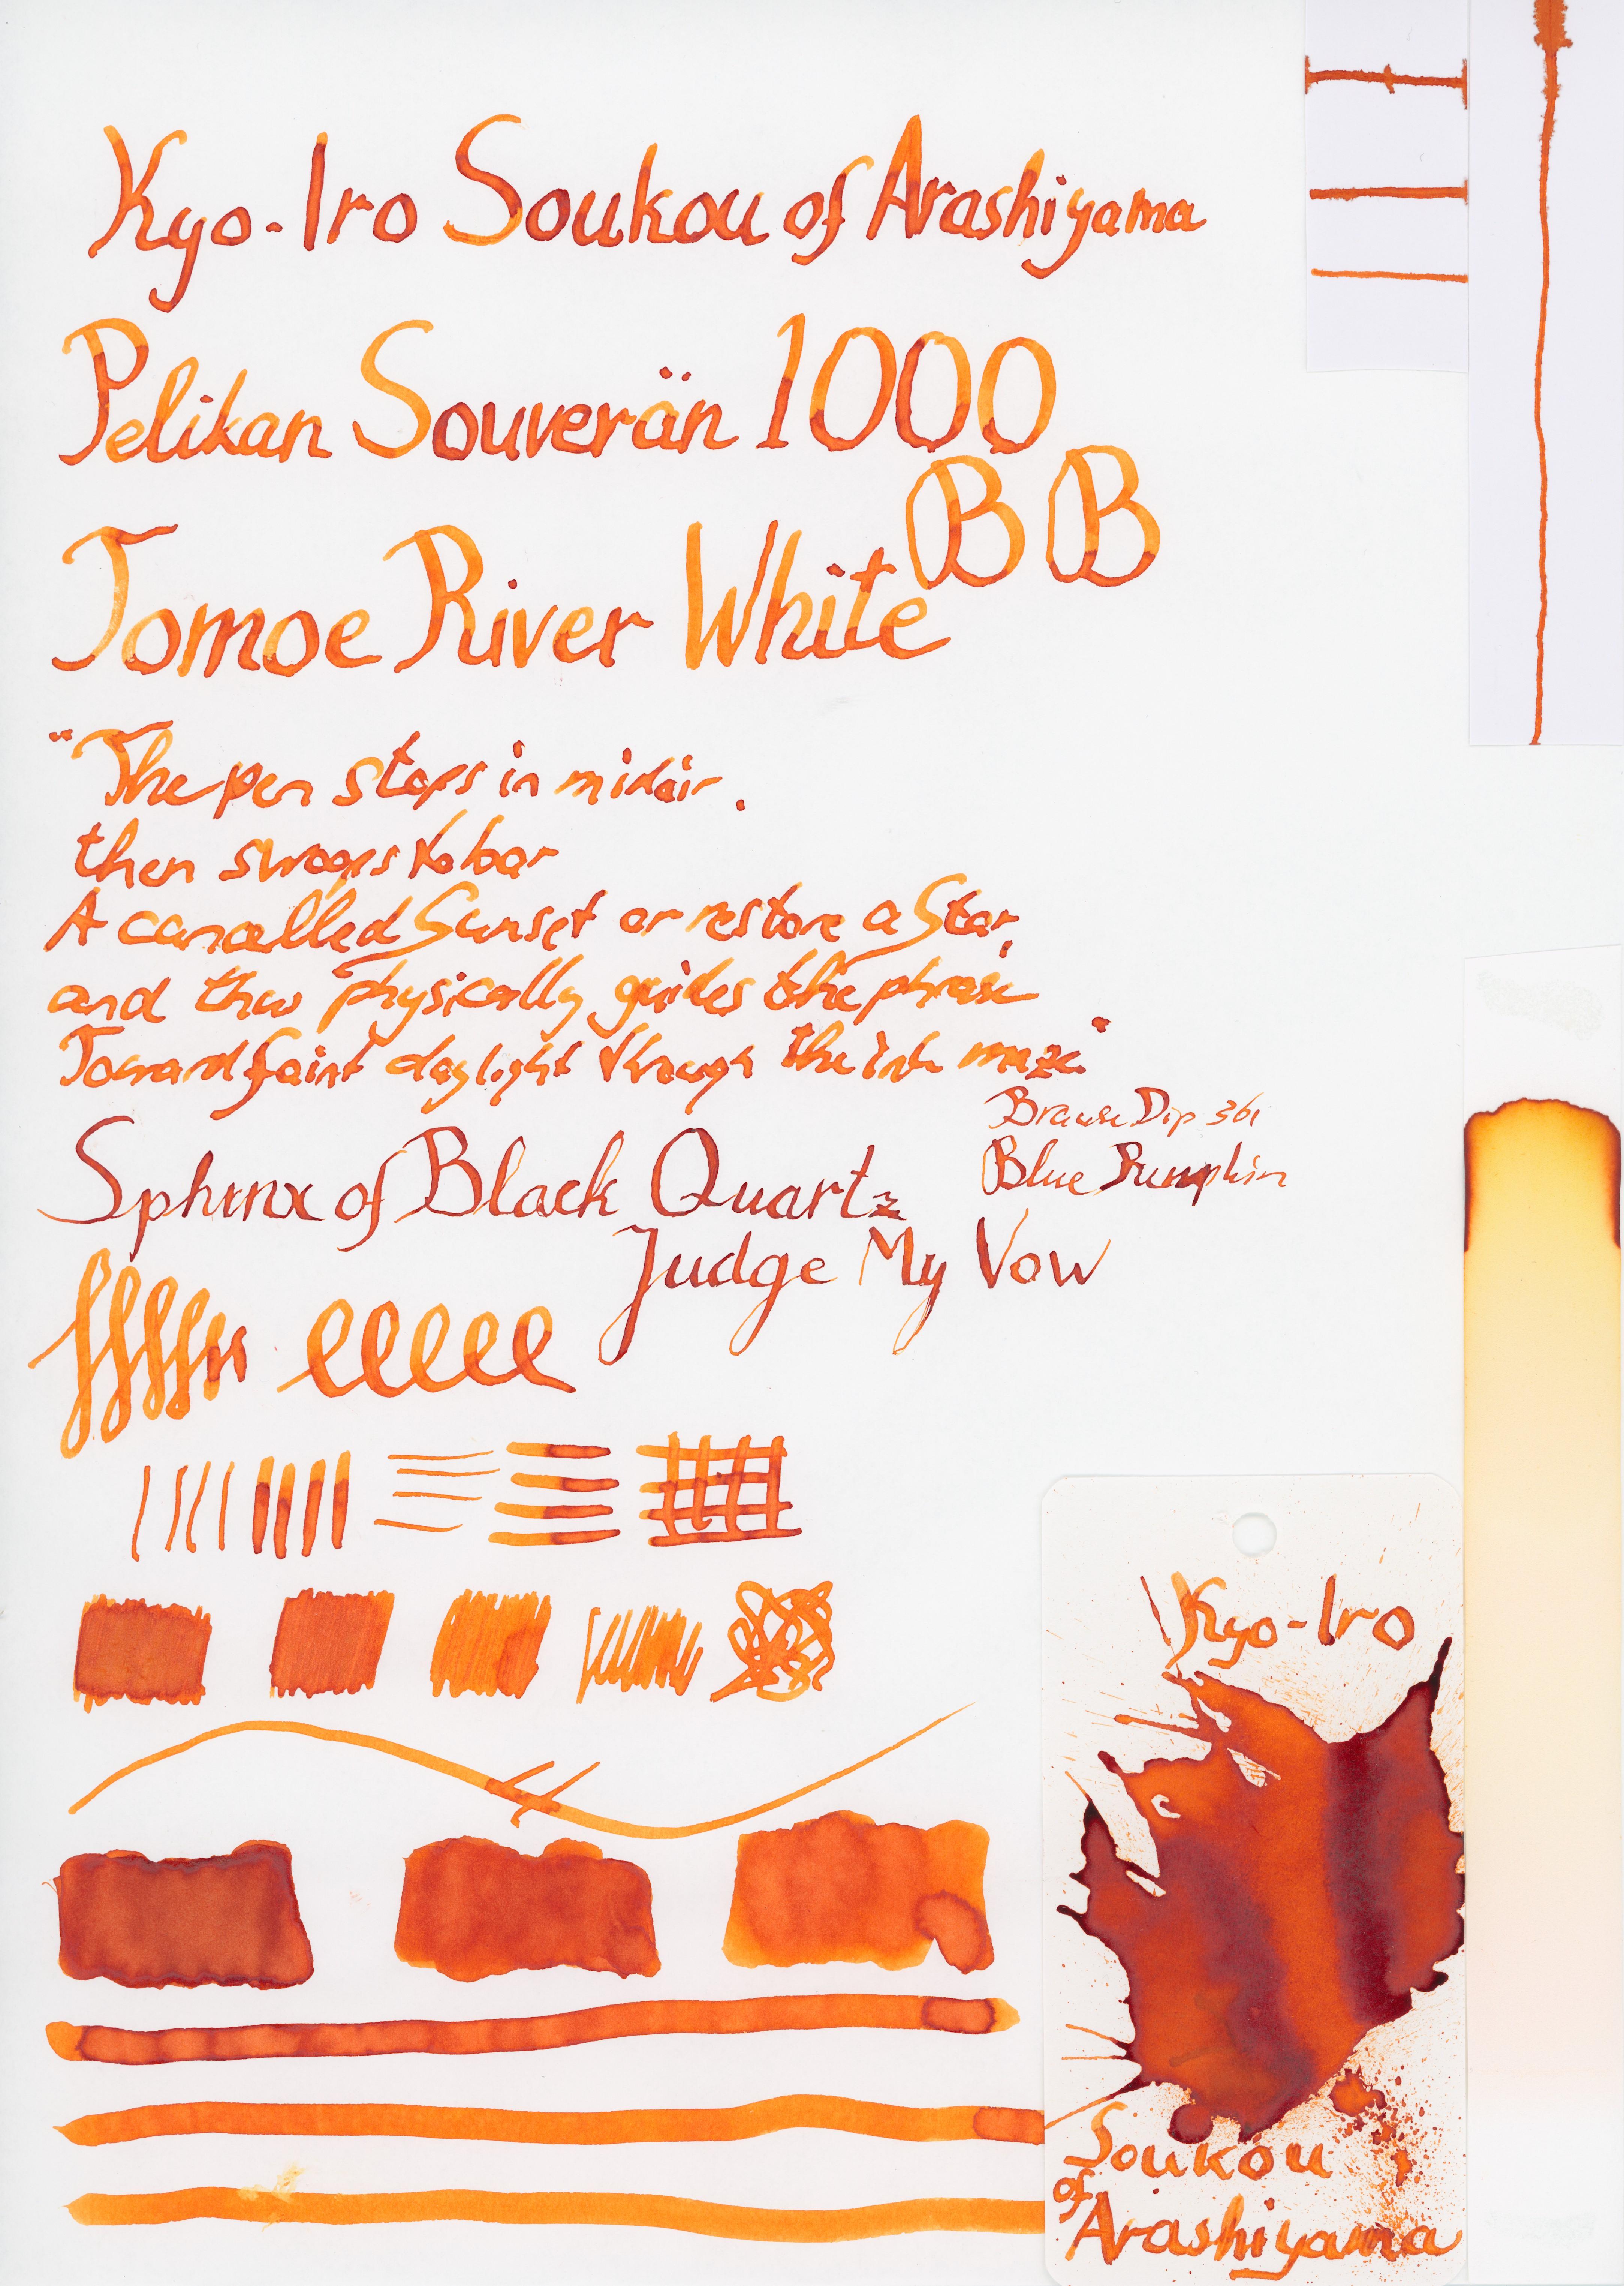 Kyo-Iro Soukou of Arashiyama
Pelikan Souverän 1000
BB
Tomoe River White
"The pen stops in midair.
then swoops to bar
A cancelled Sunset or restore a Star,
and thus physically guides the phrase
Toward faint daylight through the ink maze."
Brause Dip 361
Blue Pumpkin
Sphinx of Black Quartz
Judge My Vow
Kyo-Iro
Soukou
of
Arashiyama